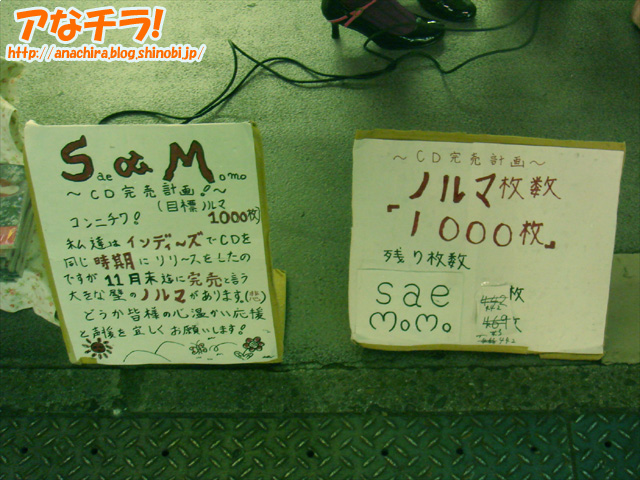 アなチラ!
http://anachira.blog.shinobi.jp/
Sae & Momo
～CD完売計画!～
(目標ノルマ
コンニチワ! 1000枚)
私達はインディーズでCDを
同じ時期にリリースをしたの
ですが11月末迄に完売と言う
大きな壁のノルマがあります。(悲)
どうか皆様の心温かい応援
と声援を宜しくお願いします!
～CD完売計画～
ノルマ枚数
「1000枚」
残り枚数
sae
枚
momo
469
442